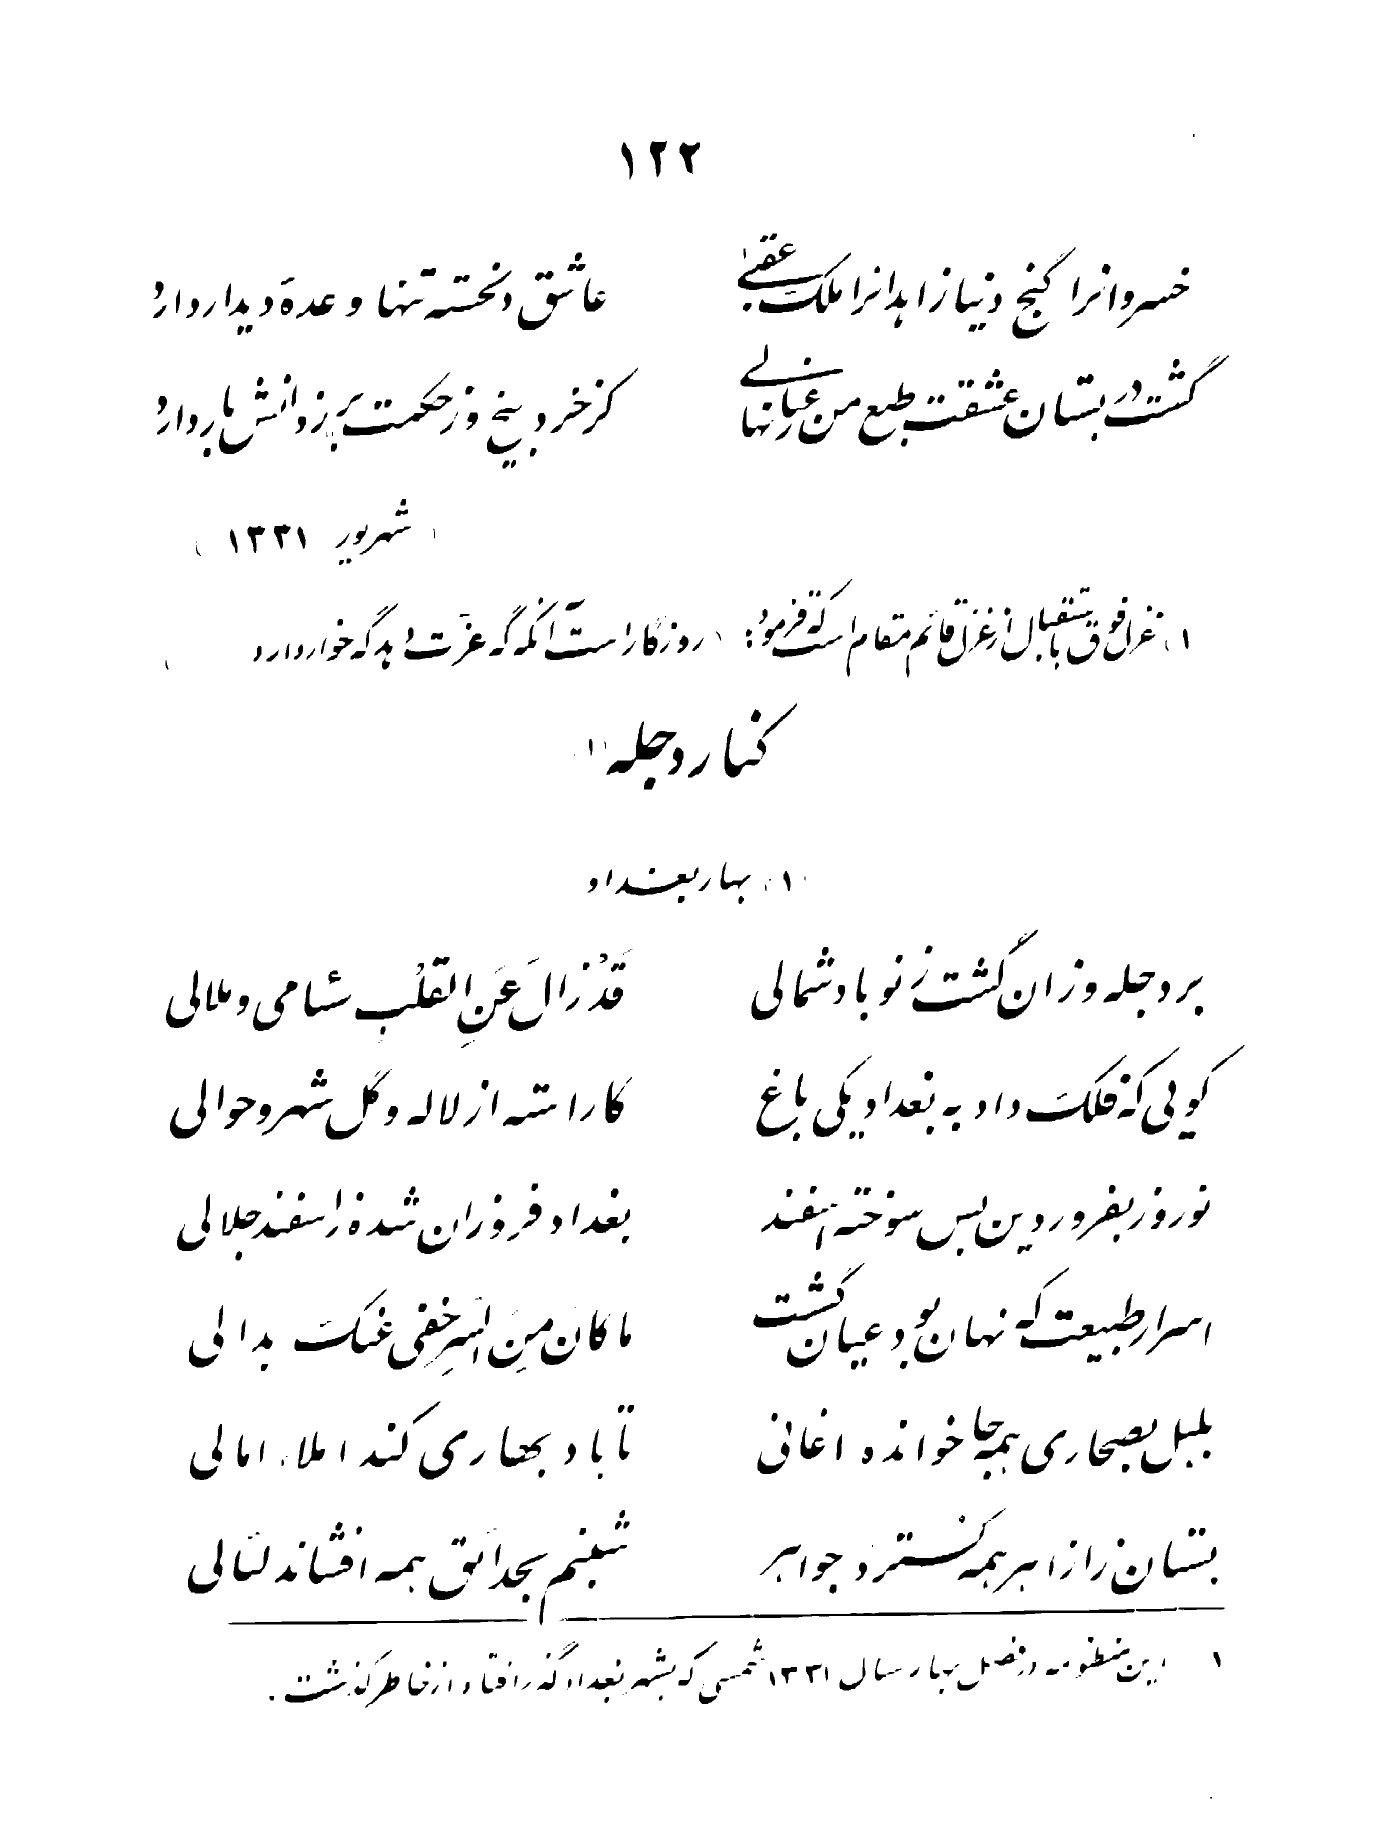 ۱۲۲
خسروانرا گنج دنیا زاهدانرا ملک عقبی عاشق دلخسته تنها وعدهٔ دیدار دارد
گشت در بستان عشقت طبع من رعنا نهالی کز خرد بیخ و ز حکمت برز دانش بار دارد
( شهریور ۱۳۳۱ )
(۱) غزل فوق باستقبال از غزل قائم مقام است که فرمود: (روزگار است آنکه گه عزت دهد گه خوار دارد)
کنار دجله (۱)
(۱) بهار بغداد
بر دجله وزان گشت ز نو باد شمالی قَدْ زالَ عَنِ القَلْبِ سئامی و ملالی
گوئی که فلک داد به بغداد یکی باغ کاراسته از لاله و گل شهر و حوالی
نوروز بفروردین بس سوخته اسفند بغداد فروزان شده ز اسفند جلالی
اسرار طبیعت که نهان بود عیان گشت ما کانَ مِنَ السِرِّ خفی عنکَ بدالی
بلبل بصحاری همه جا خوانده اغانی تا باد بهاری کند املاء امالی
بستان ز ازاهر همه گسترد جواهر شبنم بحدائق همه افشاند لئالی
۱ این منظومه در فصل بهار سال ۱۳۳۱ شمسی که بشهر بغداد گذر افتاد از خاطر گذشت.